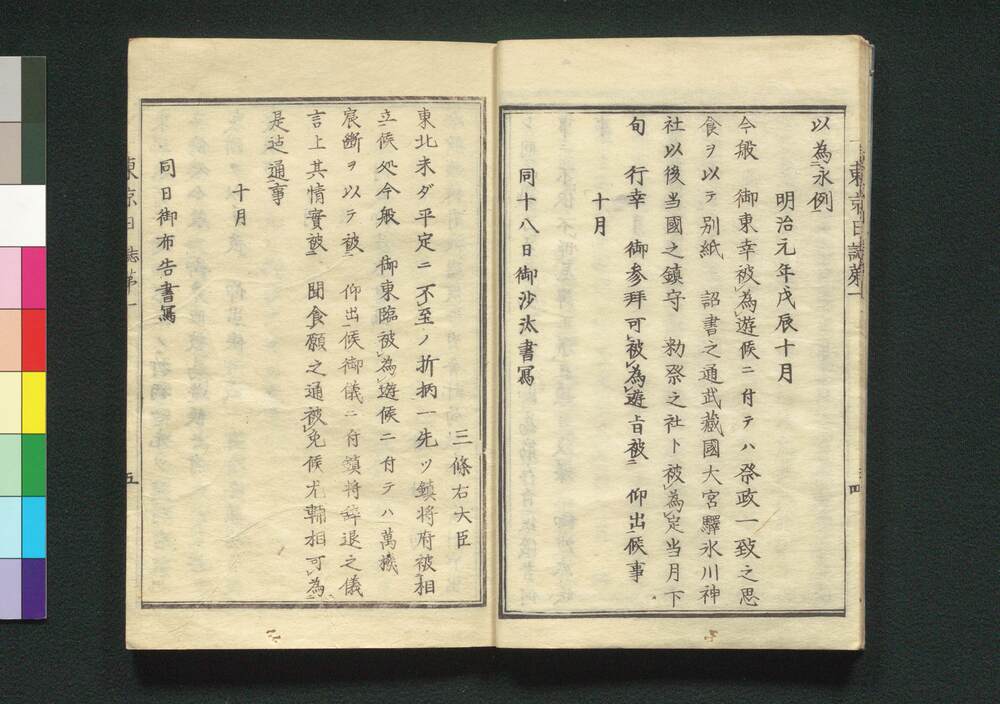 以為㆓永例㆒
明治元年戊辰十月
今般　御東幸被㆑為㆑遊候ニ付テハ祭政一致之思
食ヲ以テ別紙　詔書之通武藏國大宮驛氷川神
社以後当國之鎮守　勅祭之社ト被㆑為㆑定当月下
旬　行幸　御参拜可㆑被㆑為㆑遊旨被㆓　仰出㆒候事
十月
同十八日御沙汰書寫
東京日誌第一
四
三條右大臣
東北未ダ平定ニ不㆑至ノ折柄一先ツ鎮将府被㆓相
立㆒候処今般　御東臨被㆑為㆑遊候ニ付テハ萬機
宸斷ヲ以テ被㆓　仰出㆒候御儀ニ付鎮将辞退之儀
言上其情實被㆓　聞食㆒願之通被㆑免候尤輔相可㆑為㆓
是迠通㆒事
十月
同日御布告書寫
東京日誌第一
五